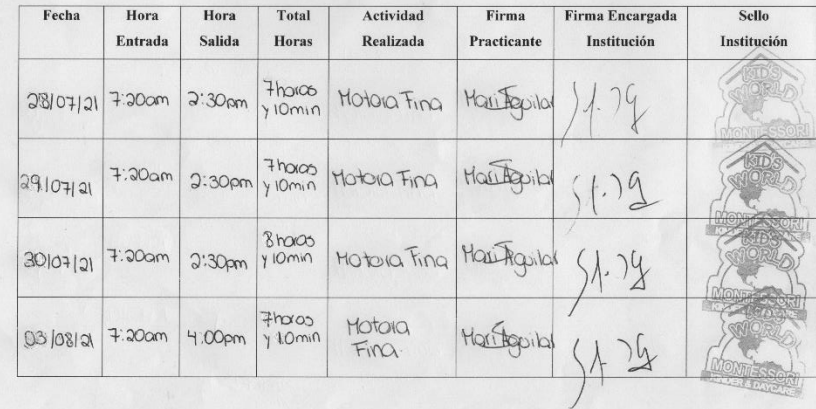 Fecha Hora Hora Total Actividad Firma Firma Encargada Sello
Entrada Salida Horas Realizada Practicante Institución Institución
28/07/21 7:20am 2:30pm 7horas y 10min Motora Fina Mari Aguilar KID'S WORLD MONTESSORI
29/07/21 7:20am 2:30pm 7horas y 10min Motora Fina Mari Aguilar KID'S WORLD MONTESSORI
30/07/21 7:20am 2:30pm 8horas y 10min Motora Fina Mari Aguilar KID'S WORLD MONTESSORI
03/08/21 7:20am 4:00pm 7horas y 10min Motora Fina. Mari Aguilar WORLD MONTESSORI KINDER & DAYCARE